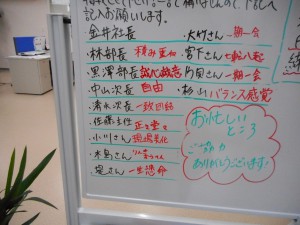 記入お願いします。
金井社長 ・大竹さん 一期一会
・林部長 積み重ね ・宮下さん 七転八起
・黒澤部長 誠心誠意 ・阿見さん 一期一会
・中山次長 自由 ・杉山 バランス感覚
・清水次長 一致団結
・佐藤主任 正々堂々
・小川さん 現場美化
・木島さん
・堤さん 一生懸命
お忙しい
ところ
ご協力
ありがとうございます!